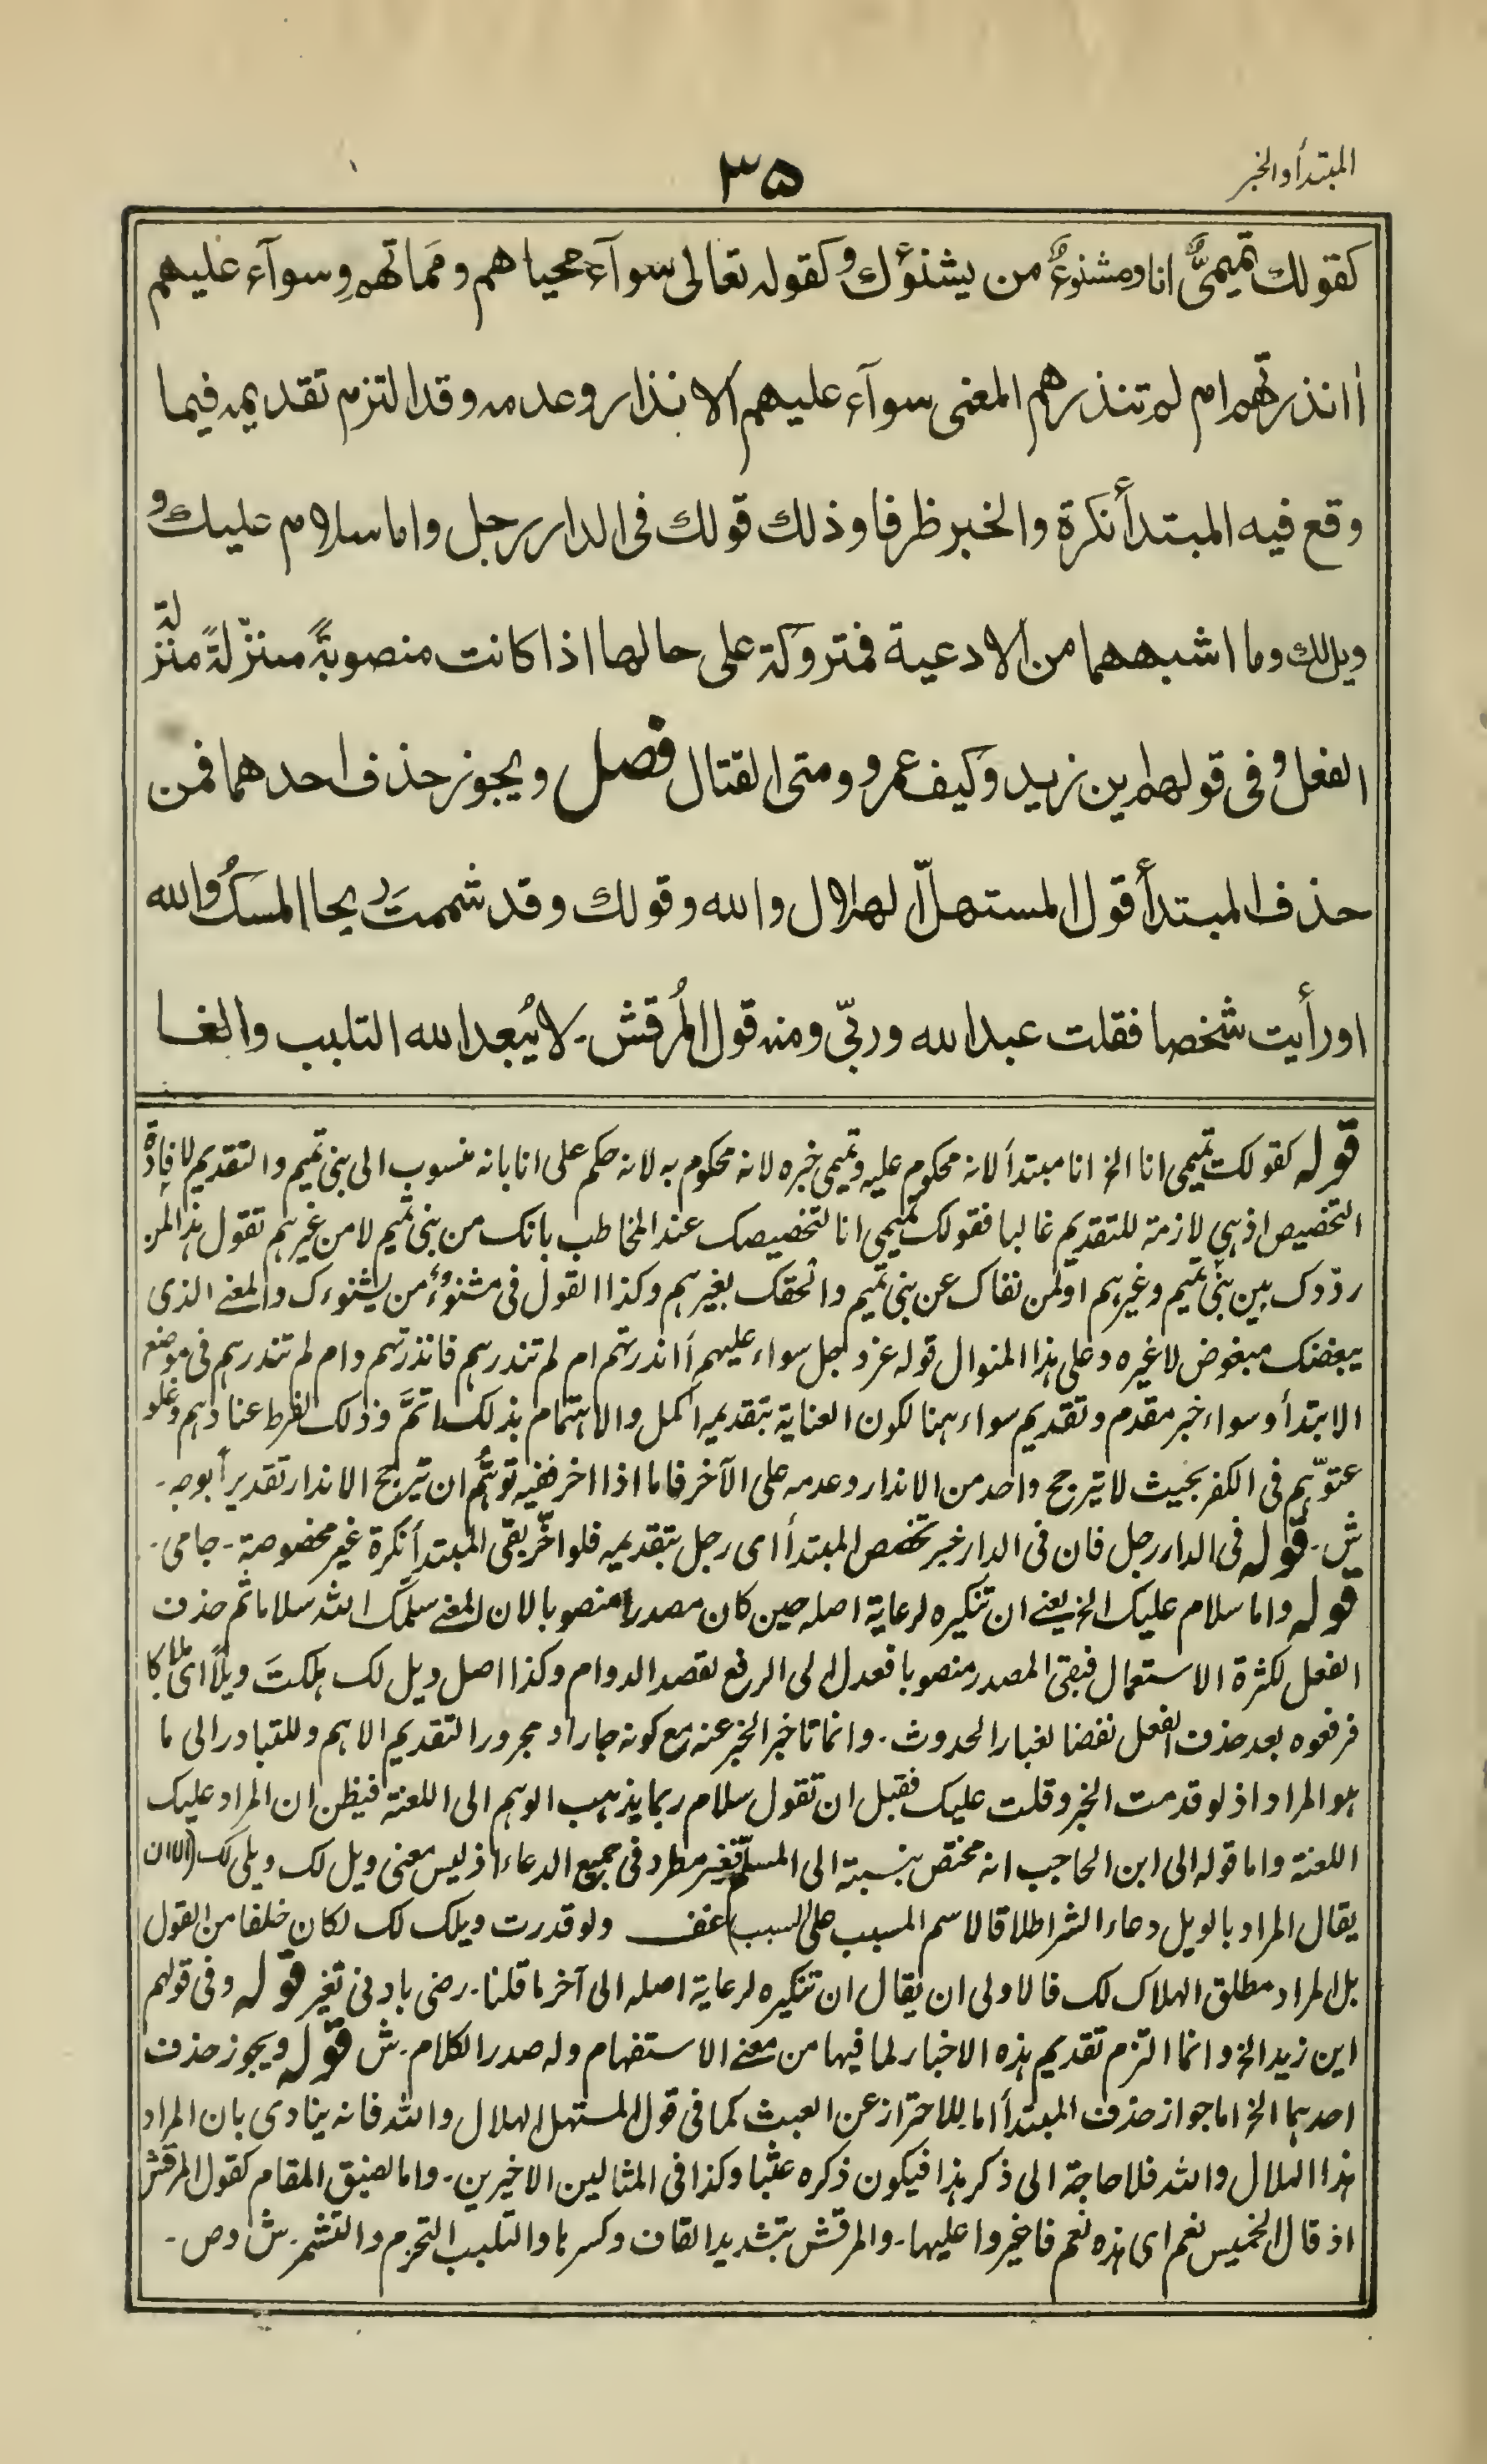 المبتدأ والخبر
٣٥
كقولك تميميٌّ انا ومشنوءٌ من يشنؤك و كقوله تعالى سوآء محياهم ومَماتُهم وسوآء عليهم
أانذرتهم ام لم تنذرهم المعنى سوآء عليهم الانذار وعدمه وقد التزم تقديمه فيما
وقع فيه المبتدأ نكرة والخبر ظرفا وذلك قولك فى الدار رجل واما سلام عليك و
ويل لك وما اشبههما من الادعية فمتروكة على حالها اذا كانت منصوبةً منزّلةً منزلة
الفعل و فى قولهم اين زيد وكيف عمرو ومتى القتال فصل ويجوز حذف احدهما فمن
حذف المبتدأ قول المستهلّ الهلال والله وقولك وقد شممتَ ريحا المسكُ والله
او رأيت شخصا فقلت عبد الله وربّى ومنه قول المُرقش. لا يُبعد الله التلبب والغا
قوله كقولك تميمى انا الخ انا مبتدأ لانه محكوم عليه وتميمى خبره لانه محكوم به لانه حكم على انا بانه منسوب الى بنى تميم والتقديم لافادة
التخصيص اذ هى لازمة للتقديم غالبا فقولك تميمى انا لتخصيصك عند المخاطب بانك من بنى تميم لا من غيرهم تقول هذا لمن
ردّدك بين بنى تميم وغيرهم او لمن نفاك عن بنى تميم والحقك بغيرهم وكذا القول فى مشنوءٌ من يشنوءك والمعنے الذى
يبغضك مبغوض لا غيره وعلى هذا المنوال قوله عز وجل سواء عليهم أانذرتهم ام لم تنذرهم فانذرتهم وام لم تنذرهم فى موضع
الابتدأ وسواء خبر مقدم وتقديم سواء ههنا لكون العناية بتقديمه اكمل والاهتمام بذلك اتمّ وذلك لفرط عنادهم وغلو
عتوّهم فى الكفر بحيث لا يترجح واحد من الانذار وعدمه على الآخر فاما اذا اخر ففيه توهُّم ان يترجح الانذار تقديراً بوجه.
ش. قوله فى الدار رجل فان فى الدار خبر تخصص المبتدأ اى رجل بتقديمه فلو اخّر بقى المبتدأ نكرة غير مخصوصة. جامى.
قوله واما سلام عليك الخ يعنے ان تنكيره لرعاية اصله حين كان مصدرا منصوبا لان المعنے سلّمك الله سلاما ثم حذف
الفعل لكثرة الاستعمال فبقى المصدر منصوبا فعدل الى الرفع لقصد الدوام وكذا اصل ويل لك هلكتَ ويلاً اى هلاكا
فرفعوه بعد حذف الفعل نفضا لغبار الحدوث. وانما تاخير الخبر عنه مع كونه جارا ومجرورا لتقديم الاهم وللتبادر الى ما
هو المراد اذ لو قدمت الخبر وقلت عليك فقبل ان تقول سلام ربما يذهب الوهم الى اللعنة فيظن ان المراد عليك
اللعنة واما قوله الى ابن الحاجب انه مختص بنسبة الى المسلم فغير مطرد فى جميع الدعاء اذ ليس معنى ويل لك ويلى لك (الا ان
يقال المراد بالويل دعاء الشر اطلاقا لاسم المسبب على السبب) عف ولو قدرت ويلك لك لكان خلفا من القول
بل المراد مطلق الهلاك لك فالاولى ان يقال ان تنكيره لرعاية اصله الى آخر ما قلنا. رضى بادنى تغير قوله وفى قولهم
اين زيد الخ وانما التزم تقديم هذه الاخبار لما فيها من معنے الاستفهام وله صدر الكلام. ش قوله ويجوز حذف
احدهما الخ اما جواز حذف المبتدأ اما للاحتراز عن العبث كما فى قول المستهل الهلال والله فانه ينادى بان المراد
هذا الهلال والله فلا حاجة الى ذكر هذا فيكون ذكره عبثا وكذا فى المثالين الاخيرين. واما لضيق المقام كقول المرقش
اذ قال الخميس نعم اى هذه نعم فاغيروا عليها. والمرقش بتشديد القاف وكسرها والتلبب التحزم والتشمر. ش وص.